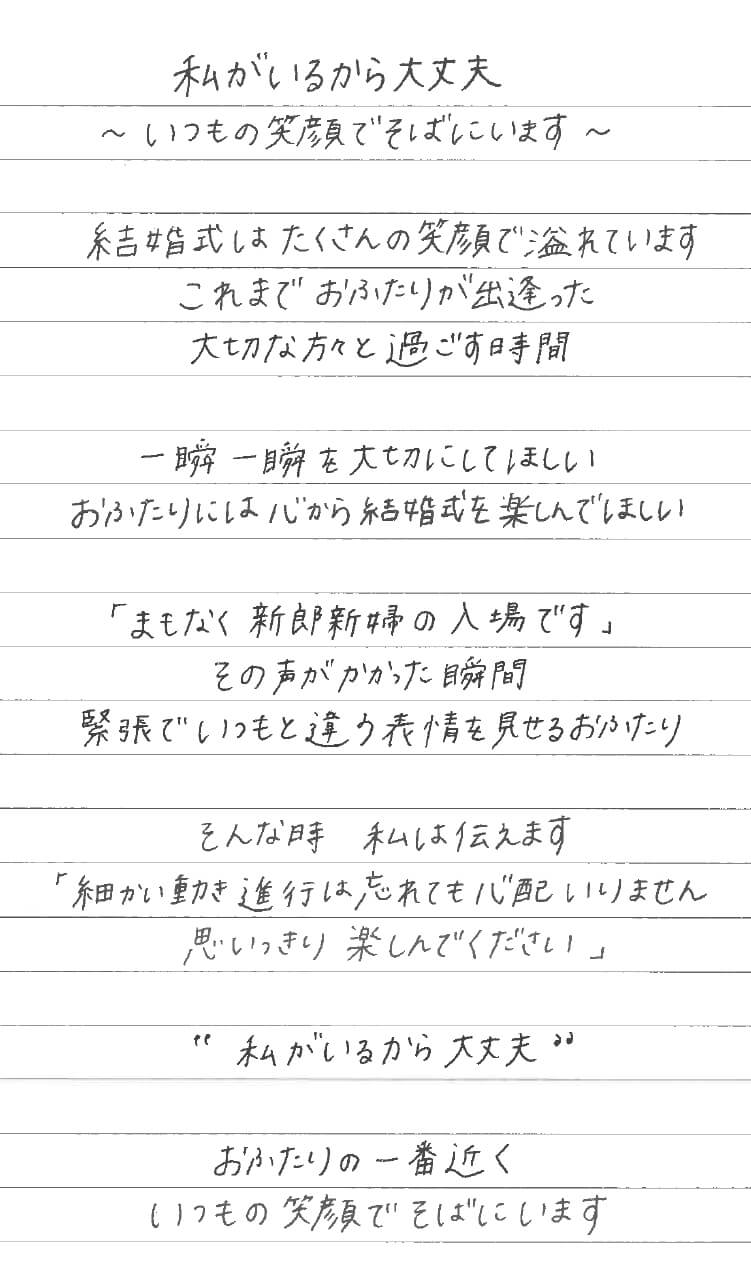 私がいるから大丈夫
～いつもの笑顔でそばにいます～
結婚式はたくさんの笑顔で溢れています
これまでおふたりが出逢った
大切な方々と過ごす時間
一瞬一瞬を大切にしてほしい
おふたりには心から結婚式を楽しんでほしい
「まもなく新郎新婦の入場です」
その声がかかった瞬間
緊張でいつもと違う表情を見せるおふたり
そんな時　私は伝えます
「細かい動き進行は忘れても心配いりません
思いっきり楽しんでください」
〝私がいるから大丈夫〟
おふたりの一番近く
いつもの笑顔でそばにいます